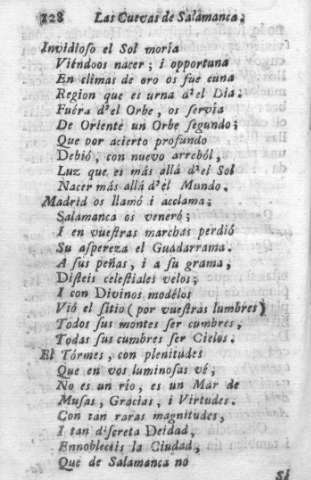 228 Las Cuevas de Salamanca.
Invidioſo el Sol moria
Viéndoos nacer; i opportuna
En climas de oro os fue cuna
Region que es urna d'el Dia:
Fuéra d'el Orbe, os ſervia
De Oriente un Orbe ſegundo;
Que por acierto profundo
Debió, con nuevo arreból,
Luz que es más allá d'el Sol
Nacer más allá d'el Mundo.
Madrid os llamó i acclama;
Salamanca os veneró;
I en vueſtras marchas perdió
Su aſpereza el Guadarrama.
A ſus peñas, i a ſu grama,
Diſteis celeſtiales velos;
I con Divinos modélos
Vió el ſitio (por vueſtras lumbres)
Todos ſus montes ſer cumbres,
Todas ſus cumbres ſer Cielos.
El Tórmes, con plenitudes
Que en vos luminoſas vé,
No es un rio, es un Mar de
Muſas, Gracias, i Virtudes.
Con tan raras magnitudes,
I tan diſcreta Deidad,
Ennobleceis la Ciudad,
Que de Salamanca no
Si